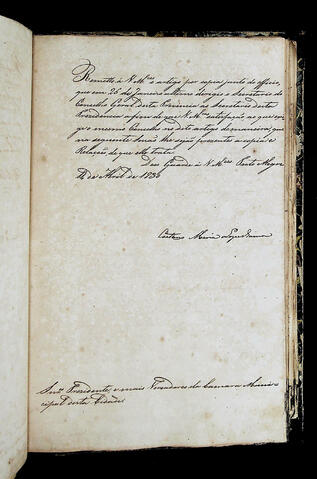 Remetto á VMces o artigo por copia junto do officio,
que em 26 de Janeiro dirigio o Secretario do
Conselho Geral desta Provincia ao Secretario desta
Presidencia afim de que VMces satisfação ao que exi-
ge o mesmo Conselho no dito artigo de maneira, que
na seguinte Sessão lhe sejão presentes a copia e
Relação de que elle trata.
Deos Guarde á VMces Porto Alegre
de Abril de 1830
Caetano Maria Lopes Gama
Snres Presidente, e mais Vereadores da Camara Muni-
cipal desta Cidade